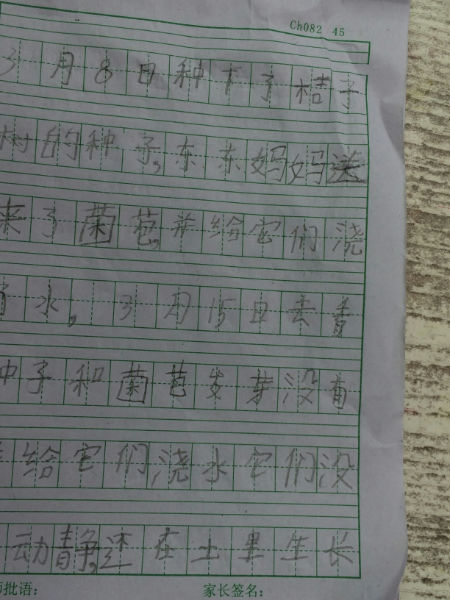 Ch082 45
3月8日种下了桔子
树的种子,东东妈妈送
来了菌苞,并给它们浇
水。3月15日去看
种子和菌苞发芽没有
给它们浇水它们没
动静,还在土里生长
批语: 家长签名: